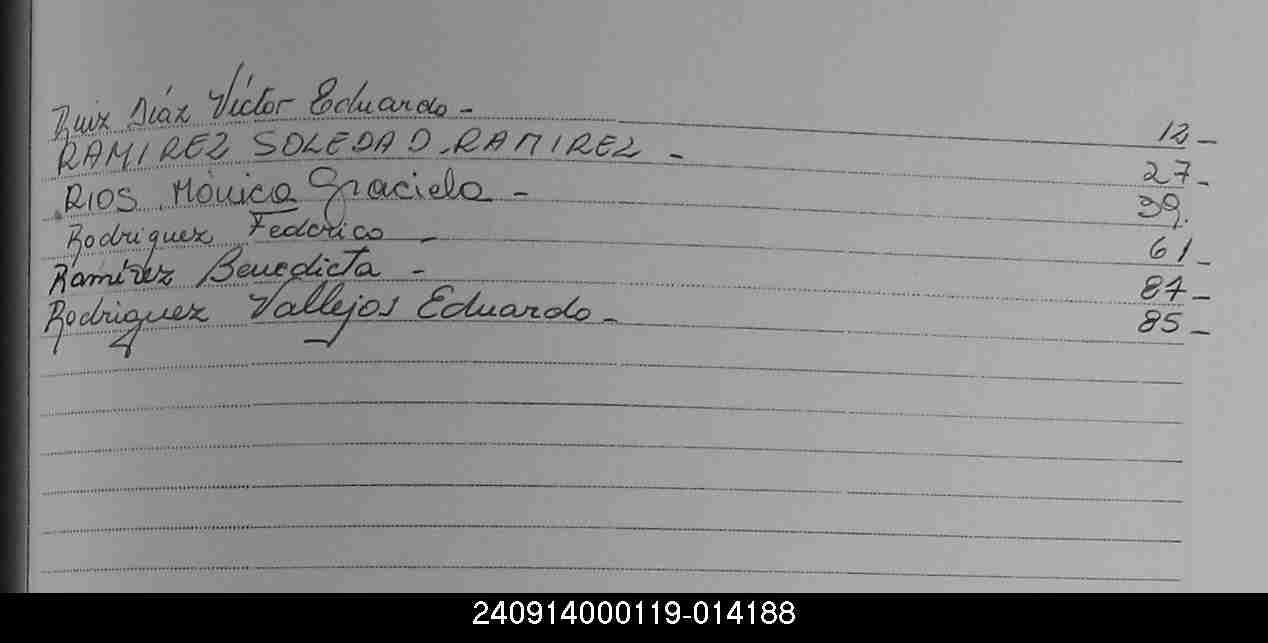 Ruiz Diáz Víctor Eduardo - 12 -
RAMIREZ SOLEDAD RAMIREZ - 27 -
RIOS Mónica Graciela - 39.
Rodriguez Federico - 61 -
Ramírez Benedicta - 87 -
Rodriguez Vallejos Eduardo - 85 -
240914000119-014188